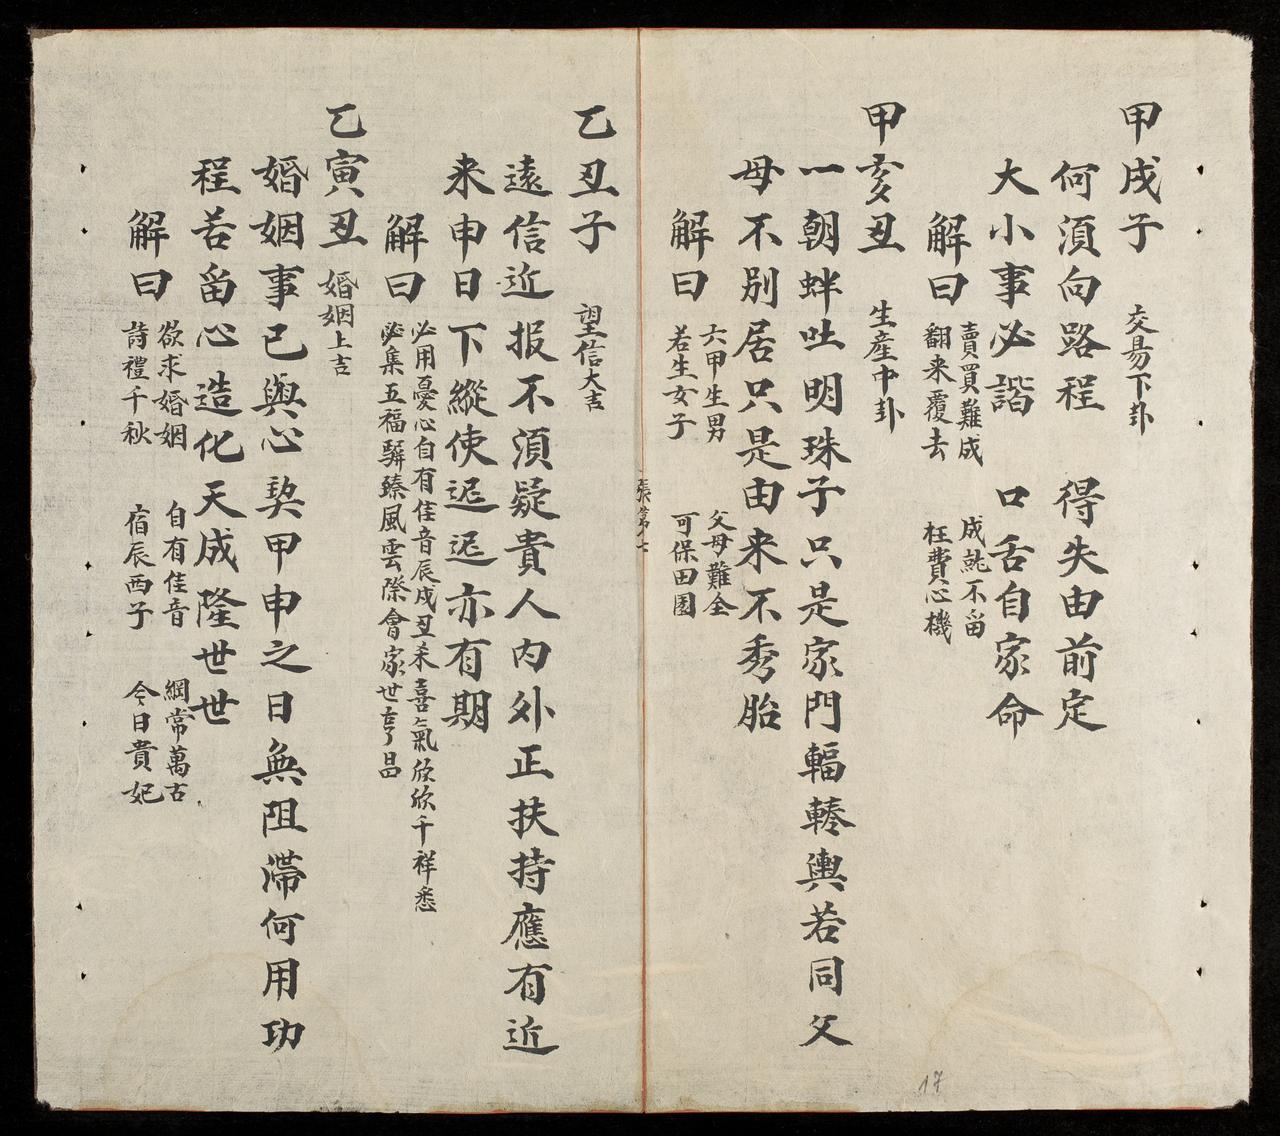 甲戌子　交易下卦
何須向路程　得失由前定
大小事必諧　口舌自家命
解曰　賣買難成　成就不留
翻来覆去　枉費心機
甲亥丑　生産中卦
一朝蚌吐明珠子只是家門輻輳輿若同父
母不别居只是由来不秀胎
解曰　六甲生男　父母難全
若生女子　可保田園
乙丑子　望信大吉
遠信近报不須疑貴人内外正扶持應有近
来申日下縱使迟迟亦有期
解曰　必用憂心自有佳音辰戌丑未喜氣欣欣千祥悉
必集五福駢臻風雲際會家世亨昌
乙寅丑　婚姻上吉
婚姻事已與心契甲申之日無阻滯何用功
程若留心造化天成隆世世
解曰　欲求婚姻　自有佳音　綱常萬古
詩禮千秋　宿辰西子　今日貴妃
17